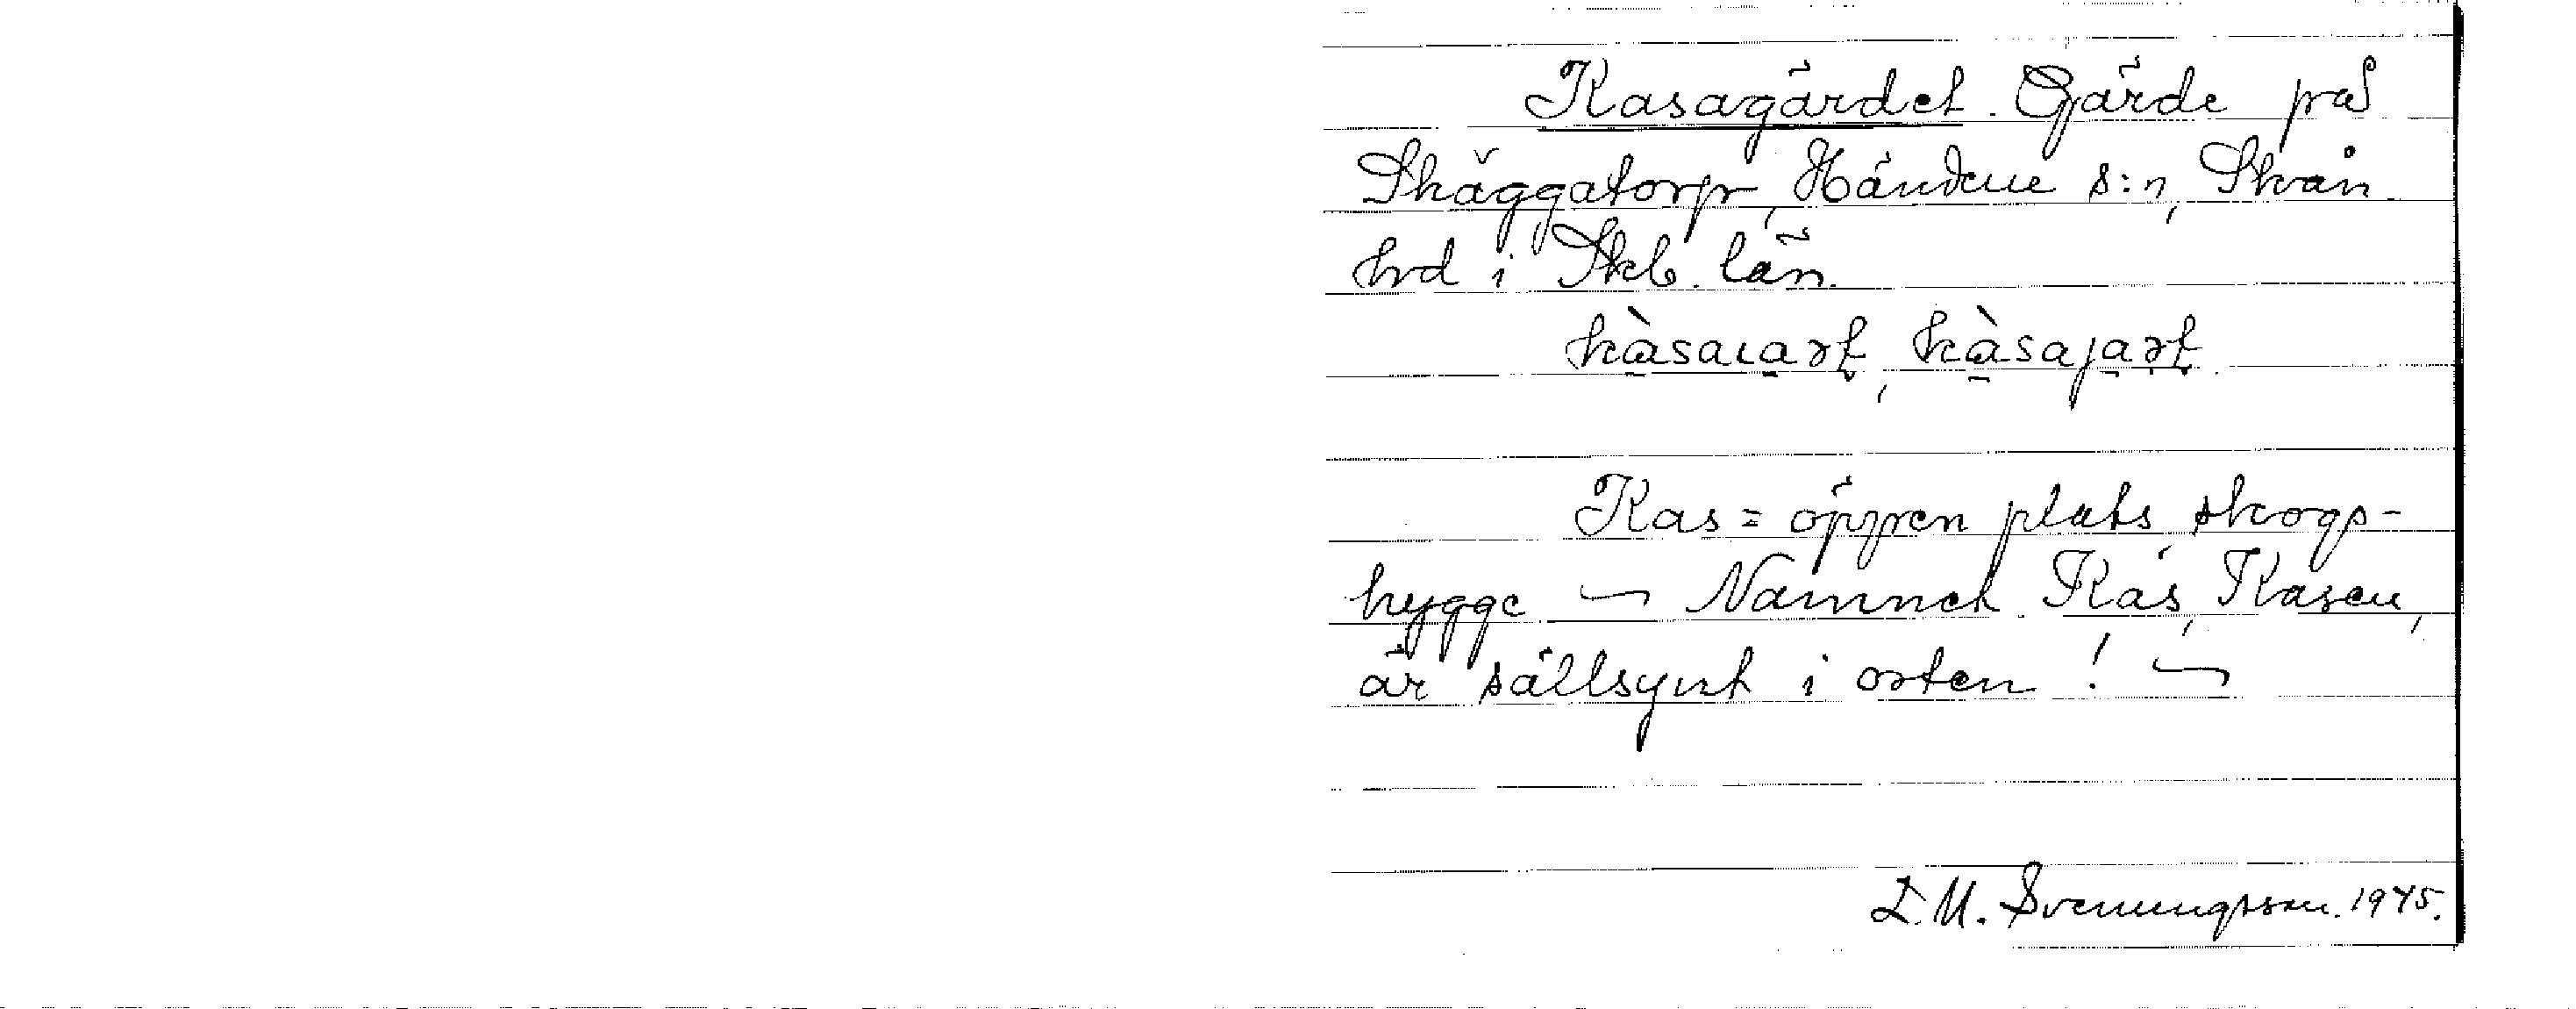 Kasagärdet. Gärde på
Skäggatorp, Händene s:n, Skån
hrd i Skb. län.
kàsaıaɽt, kàsajaɽt
Kas = öppen plats, skogs-
hygge — Namnet Kas, Kasen,
är sällsynt i orten! —
L. M. Svenungsson. 1945.